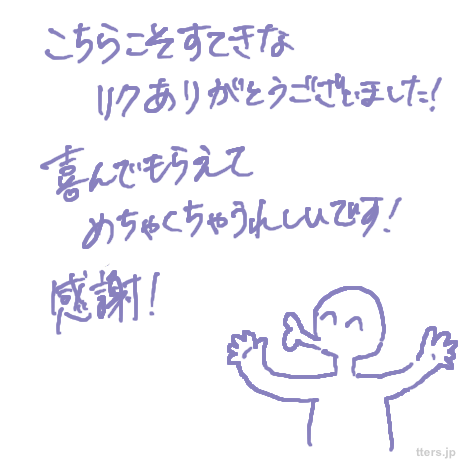 こちらこそすてきな
リクありがとうございました!
喜んでもらえて
めちゃくちゃうれしいです!
感謝!
tters.jp